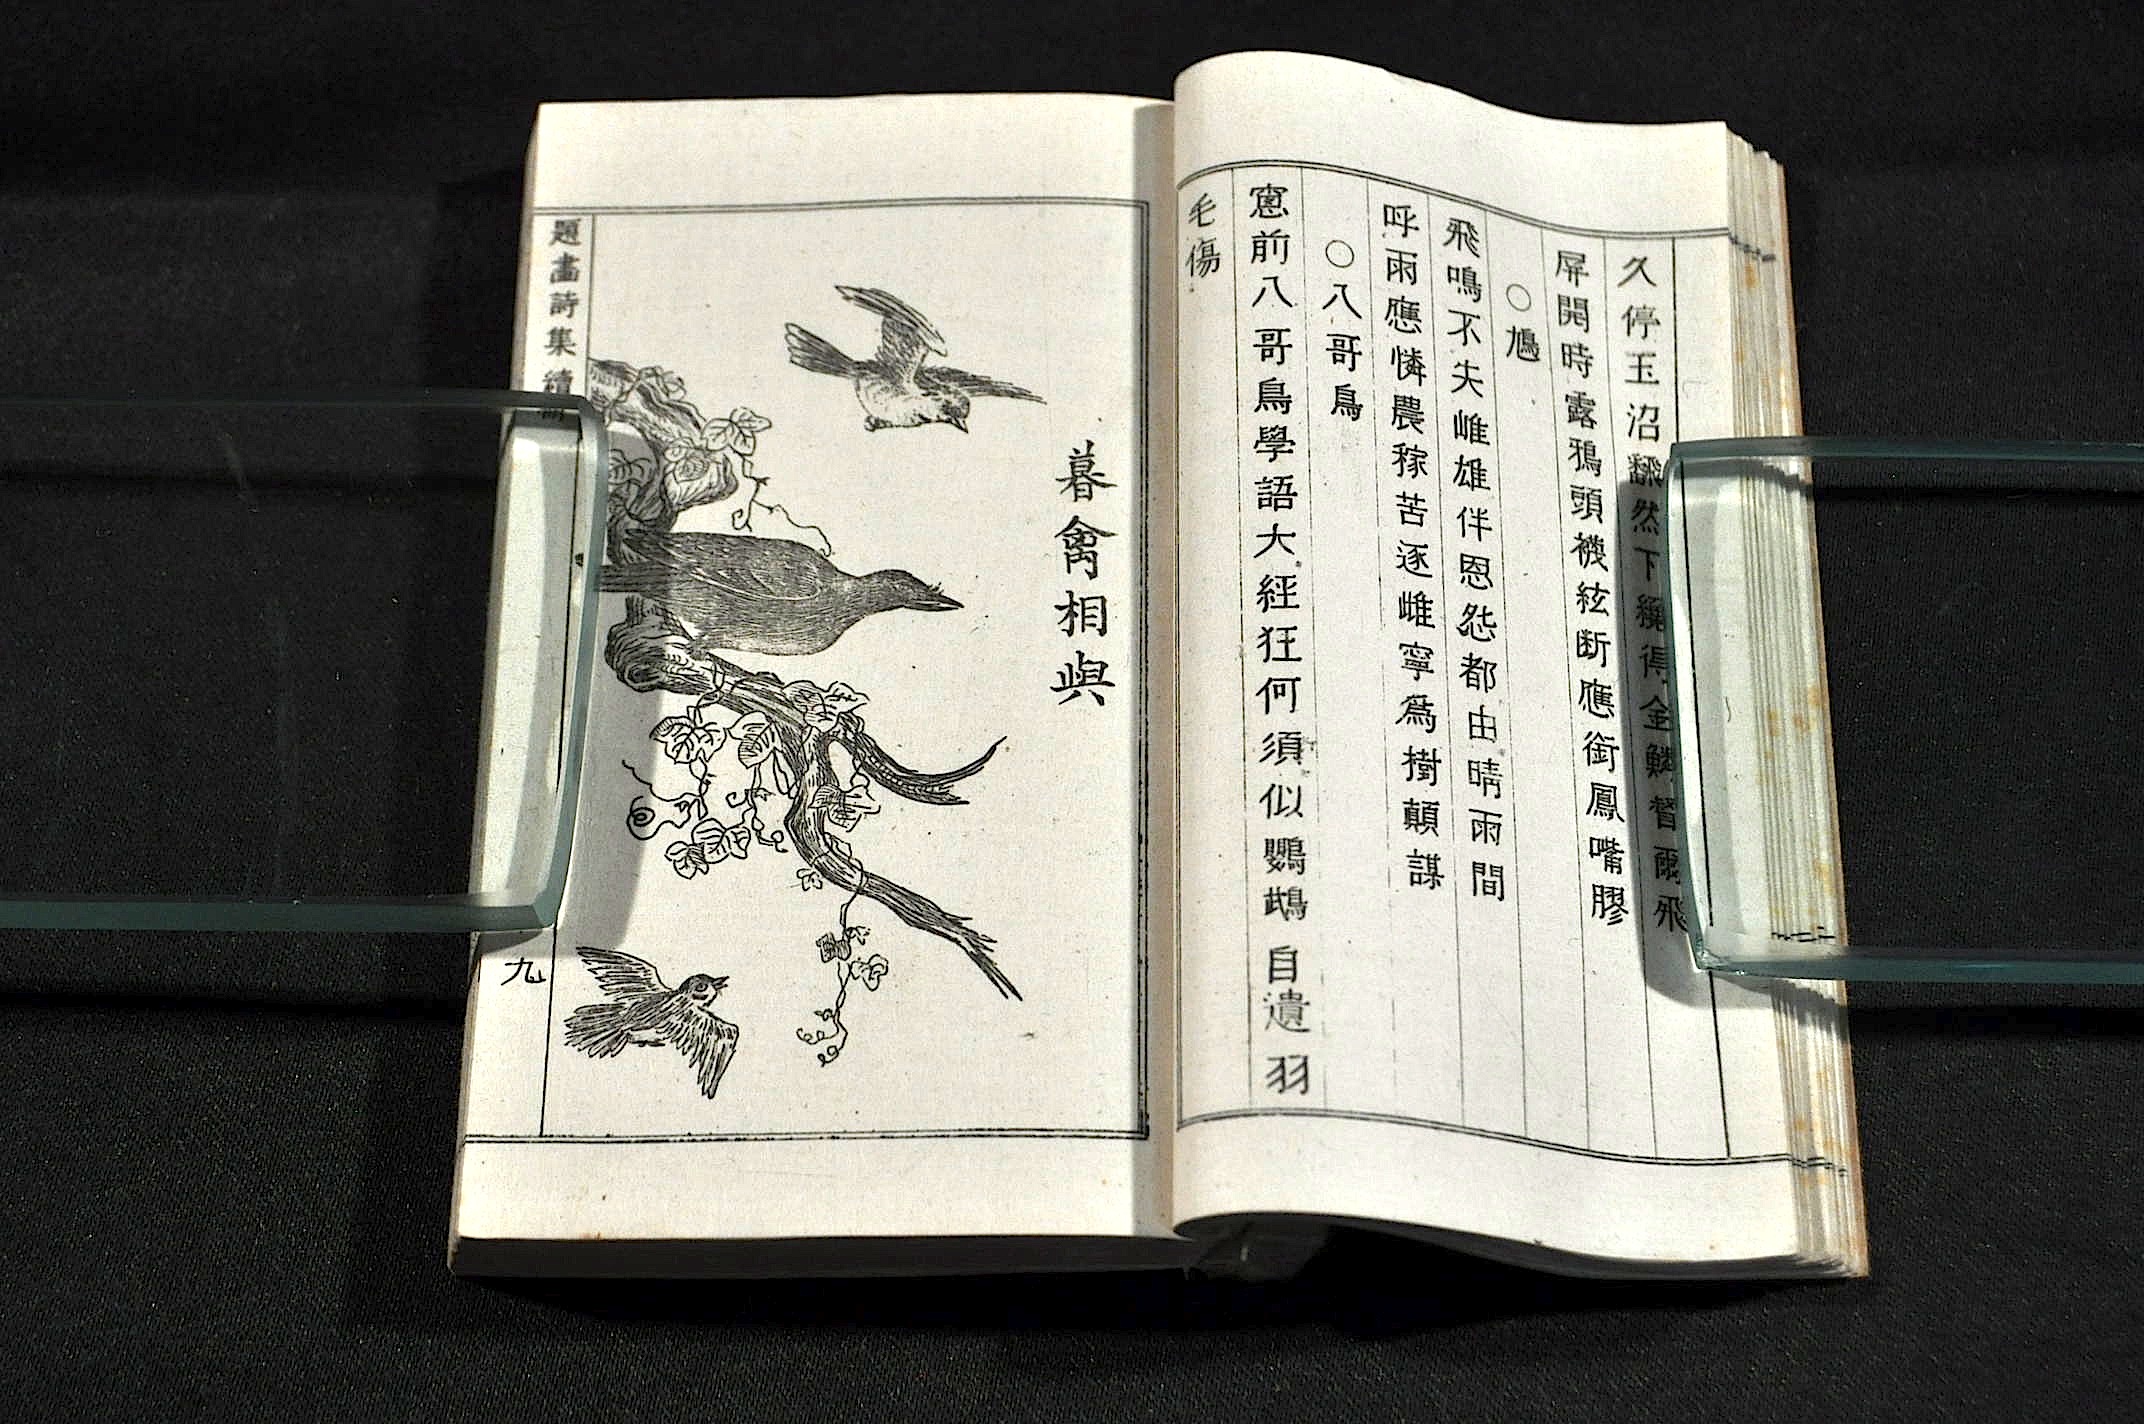 久停玉沼翻然下纔得金鱗瞥爾飛
屏開時露鴉頭襪絃断應銜鳳嘴膠
○鳩
飛鳴不失雌雄伴恩怨都由晴雨間
呼雨應憐農稼苦逐雌寧爲樹顛謀
○八哥鳥
窓前八哥鳥學語大経狂何須似鸚鵡自遺羽
毛傷
暮禽相與
題畫詩集續
九